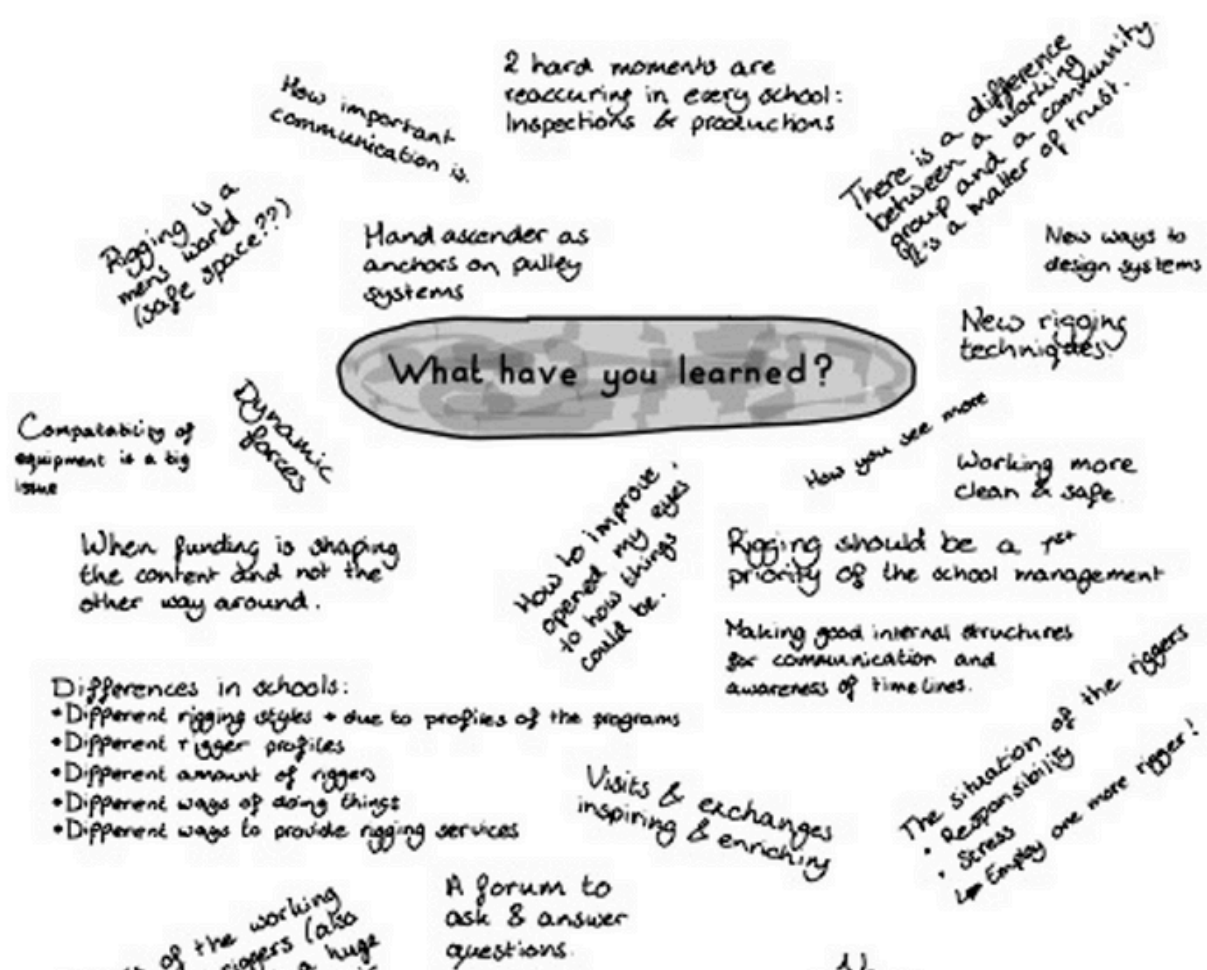 How important
communication is.
2 hard moments are
reaccuring in every school:
Inspections & productions
There is a difference
between a working
group and a community.
It's a matter of trust.
Rigging is a
mens world
(safe space??)
Hand ascender as
anchors on pulley
systems
New ways to
design systems
New rigging
techniques.
What have you learned?
Dynamic
forces
Compatability of
equipment is a big
issue
How you see more
Working more
clean & safe.
When funding is shaping
the content and not the
other way around.
How to improve,
opened my eyes
to how things
could be.
Rigging should be a 1st
priority of the school management
Making good internal structures
for communication and
awareness of timelines.
Differences in schools:
• Different rigging styles + due to profiles of the programs
• Different rigger profiles
• Different amount of riggers
• Different ways of doing things
• Different ways to provide rigging services
Visits & exchanges
inspiring & enriching
The situation of the riggers
• Responsibility
• Stress
↳ Employ one more rigger!
A forum to
ask & answer
questions.
of the working
riggers (also
a huge